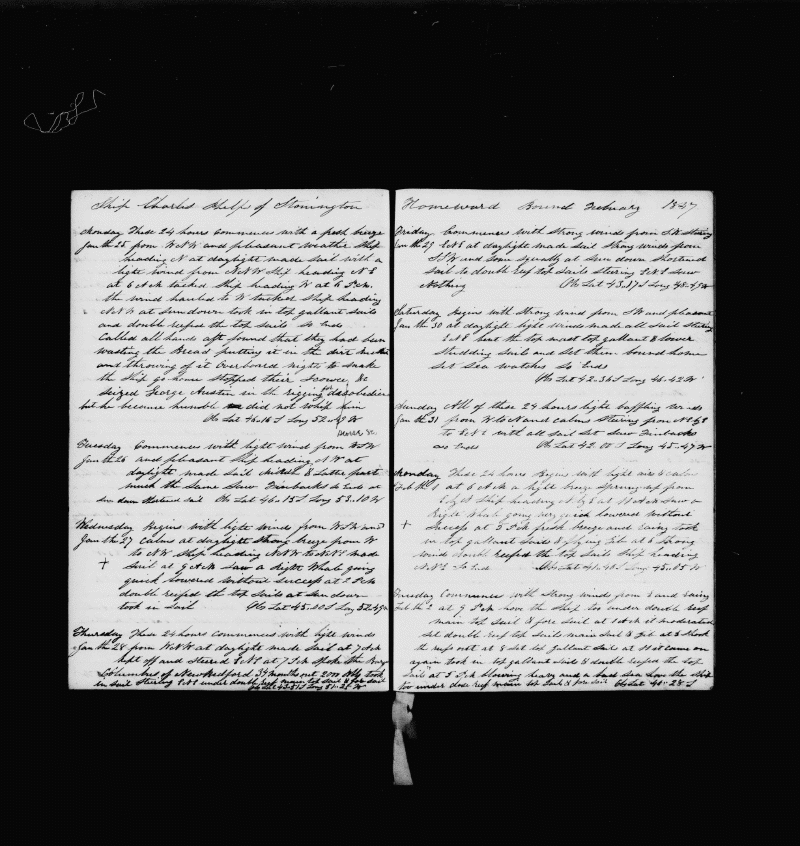 Ship Charles Phelps of Stonington
Monday These 24 hours commences with a fresh breeze
Jan the 25 from WNW and pleasant weather Ship
heading N at daylight made sail with a
light wind from NNW Ship heading NE
at 6 A M tacked Ship heading W at 6 P M
the wind hauled to W tacked Ship heading
NNW at sundown took in top gallant sails
and double reefed the top sails So Ends
Called all hands aft found that they had been
wasting the Bread putting it in the dirt
and throwing of it Overboard nights to make
the Ship go home Stopped their &c
Seized George Austin in the rigging for disobedience
but he became humble did not whip him
Ob Lat 46.16 S Long 52.49 W
Tuesday Commences with light wind from WSW
Jan the 26 and pleasant Ship heading NW at
daylight made sail Middle & Latter part
much the same Saw Finbacks So Ends at
sun down shortened sail Ob Lat 46.15 S Long 53.10 W
Wednesday Begins with light winds from WSW and
Jan the 27 calms at daylight strong breeze from W
to NW Ship heading NNW to NNE made
+ sail at 9 A M Saw a Right Whale going
quick Lowered without success at 2 P M
double reefed the top sails at sun down
took in sail Ob Lat 45.20 S Long 52.49 W
Thursday These 24 hours commences with light winds
Jan the 28 from WNW at daylight made sail at 7 A M
kept off and steered ENE at 7 P M spoke the Barge
Columbus of New Bedford 39 months out 2000 bbls took
in sail Steering ENE under double reef main top sail & fore sail
Ob Lat 43.51 S Long 51.25 W
Homeward Bound February 1847
Friday Commences with strong winds from SW Steering
Jan the 29 ENE at daylight made sail strong winds from
SSW and some squally at sun down shortened
sail to double reef top sails stering ENE Saw
Nothing Ob Lat 43.37 S Long 48.49 W
Saturday Begins with strong wind from SW and pleasant
Jan the 30 at daylight light winds made all sail stering
ENE bent the top mast top gallant & lower
Studding sails and set them bound home
set sea watches So Ends
Ob Lat 42.36 S Long 46.42 W
Sunday All of these 24 hours light baffling winds
Jan the 31 from W to N and calms stering from NE
to ENE with all sail set Saw Finbacks
so Ends Ob Lat 42. S Long 45.47 W
Monday These 24 hours Begins with light airs & calm
Feb the 1 at 6 A M a light breeze springs up from
Ship heading at 11 A M Saw a
Right Whale going very quick lowered without
+ Success at 5 P M fresh breeze and rainy took
in top gallant sails & flying Jib at 6 strong
wind double reefed the top sails Ship heading
NNE So Ends Ob Lat 41.40 S Long 45.05 W
Tuesday Commences with strong winds from and rainy
Feb the 2 at 9 P M hove the Ship too under double reef
main top sail & fore sail at 1 A M it moderated
set double reef top sails main sail & Jib at shook
the reef outs at 8 set top gallant sail at 11 it came on
again took in top gallant sails & double reefed the top
sails at 5 P M blowing heavy and a bad sea hove the Ship
too under close reef main top sail & fore sail Ob Lat 40.28 S